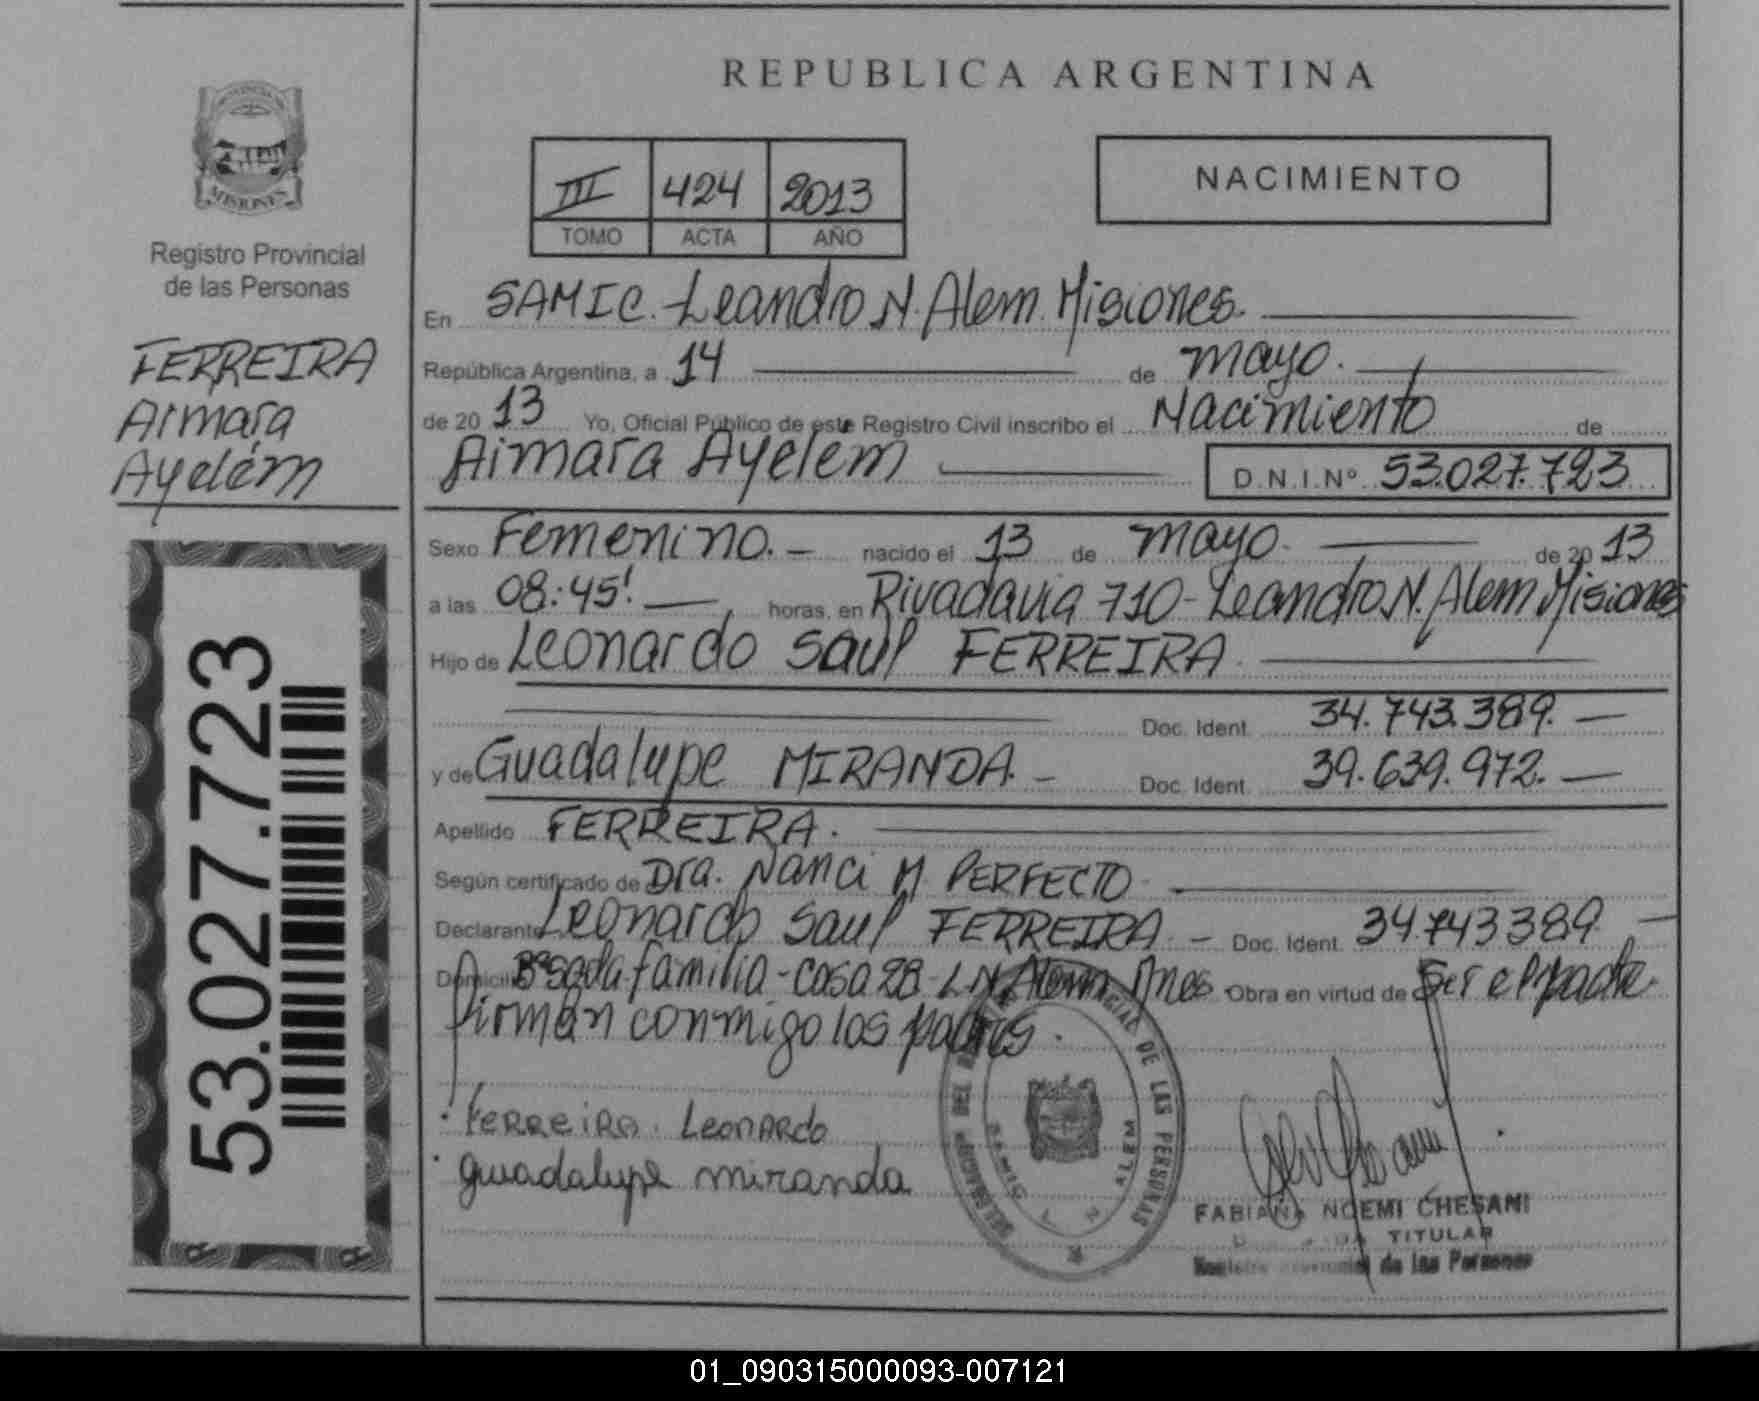 REPUBLICA ARGENTINA
PROVINCIA DE
MISIONES
Registro Provincial
de las Personas
FERREIRA
Aimara
Ayelém
53.027.723
III 424 2013
TOMO ACTA AÑO
NACIMIENTO
En SAMIC. Leandro N. Alem. Misiones.
República Argentina, a 14 de mayo.
de 2013 Yo, Oficial Público de este Registro Civil inscribo el Nacimiento de
Aimara Ayelém D.N.I.Nº 53.027.723
Sexo Femenino. nacido el 13 de mayo. de 2013
a las 08:45' horas, en Rivadavia 710 - Leandro N. Alem Misiones
Hijo de Leonardo Saúl FERREIRA.
Doc. Ident. 34.743.389.
y de Guadalupe MIRANDA. Doc. Ident. 39.639.972.
Apellido FERREIRA.
Según certificado de Dra. Nanci M. PERFECTO.
Declarante Leonardo Saúl FERREIRA. Doc. Ident. 34.743.389.
Domicilio Bº Sgda. familia - Casa 28 - L.N. Alem Mnes. Obra en virtud de Ser el padre.
firman conmigo los padres.
FERREIRA Leonardo
guadalupe miranda
DE LAS PERSONAS
SAMIC L N ALEM
FABIANA NOEMI CHESANI
TITULAR
de las Personas
01_090315000093-007121